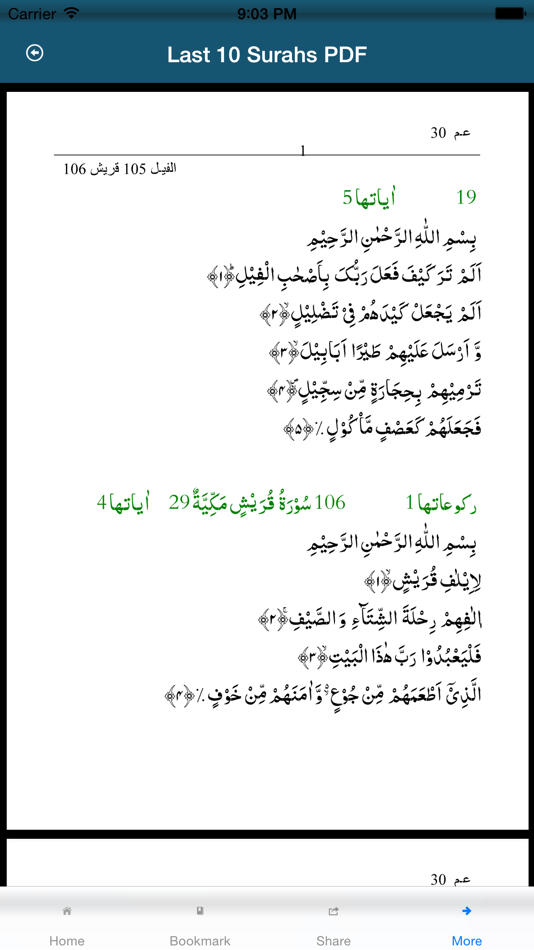 Carrier 9:03 PM
Last 10 Surahs PDF
عم 30
1
الفيل 105 قريش 106
19 اٰياتها 5
بِسْمِ اللّٰهِ الرَّحْمٰنِ الرَّحِيْمِ
اَلَمْ تَرَ كَيْفَ فَعَلَ رَبُّكَ بِاَصْحٰبِ الْفِيْلِؕ﴿۱﴾
اَلَمْ يَجْعَلْ كَيْدَهُمْ فِيْ تَضْلِيْلٍۙ﴿۲﴾
وَّ اَرْسَلَ عَلَيْهِمْ طَيْرًا اَبَابِيْلَۙ﴿۳﴾
تَرْمِيْهِمْ بِحِجَارَةٍ مِّنْ سِجِّيْلٍ۪ۙ﴿۴﴾
فَجَعَلَهُمْ كَعَصْفٍ مَّاْكُوْلٍ٪﴿۵﴾
ركوعاتها 1 106 سُوْرَةُ قُرَيْشٍ مَكِّيَّةٌ 29 اٰياتها 4
بِسْمِ اللّٰهِ الرَّحْمٰنِ الرَّحِيْمِ
لِاِيْلٰفِ قُرَيْشٍۙ﴿۱﴾
اٖلٰفِهِمْ رِحْلَةَ الشِّتَآءِ وَ الصَّيْفِۚ﴿۲﴾
فَلْيَعْبُدُوْا رَبَّ هٰذَا الْبَيْتِۙ﴿۳﴾
الَّذِيْۤ اَطْعَمَهُمْ مِّنْ جُوْعٍ۬ۙ وَّ اٰمَنَهُمْ مِّنْ خَوْفٍ٪﴿۴﴾
عم 30
Home Bookmark Share More